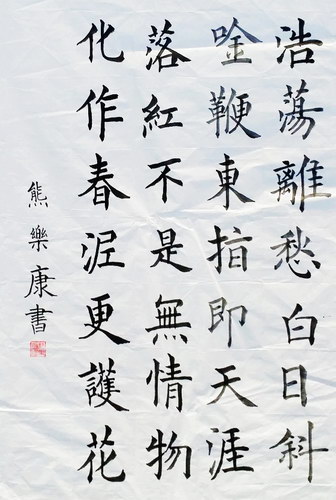 浩蕩離愁白日斜
唫鞭東指即天涯
落紅不是無情物
化作春泥更護花
熊樂康書